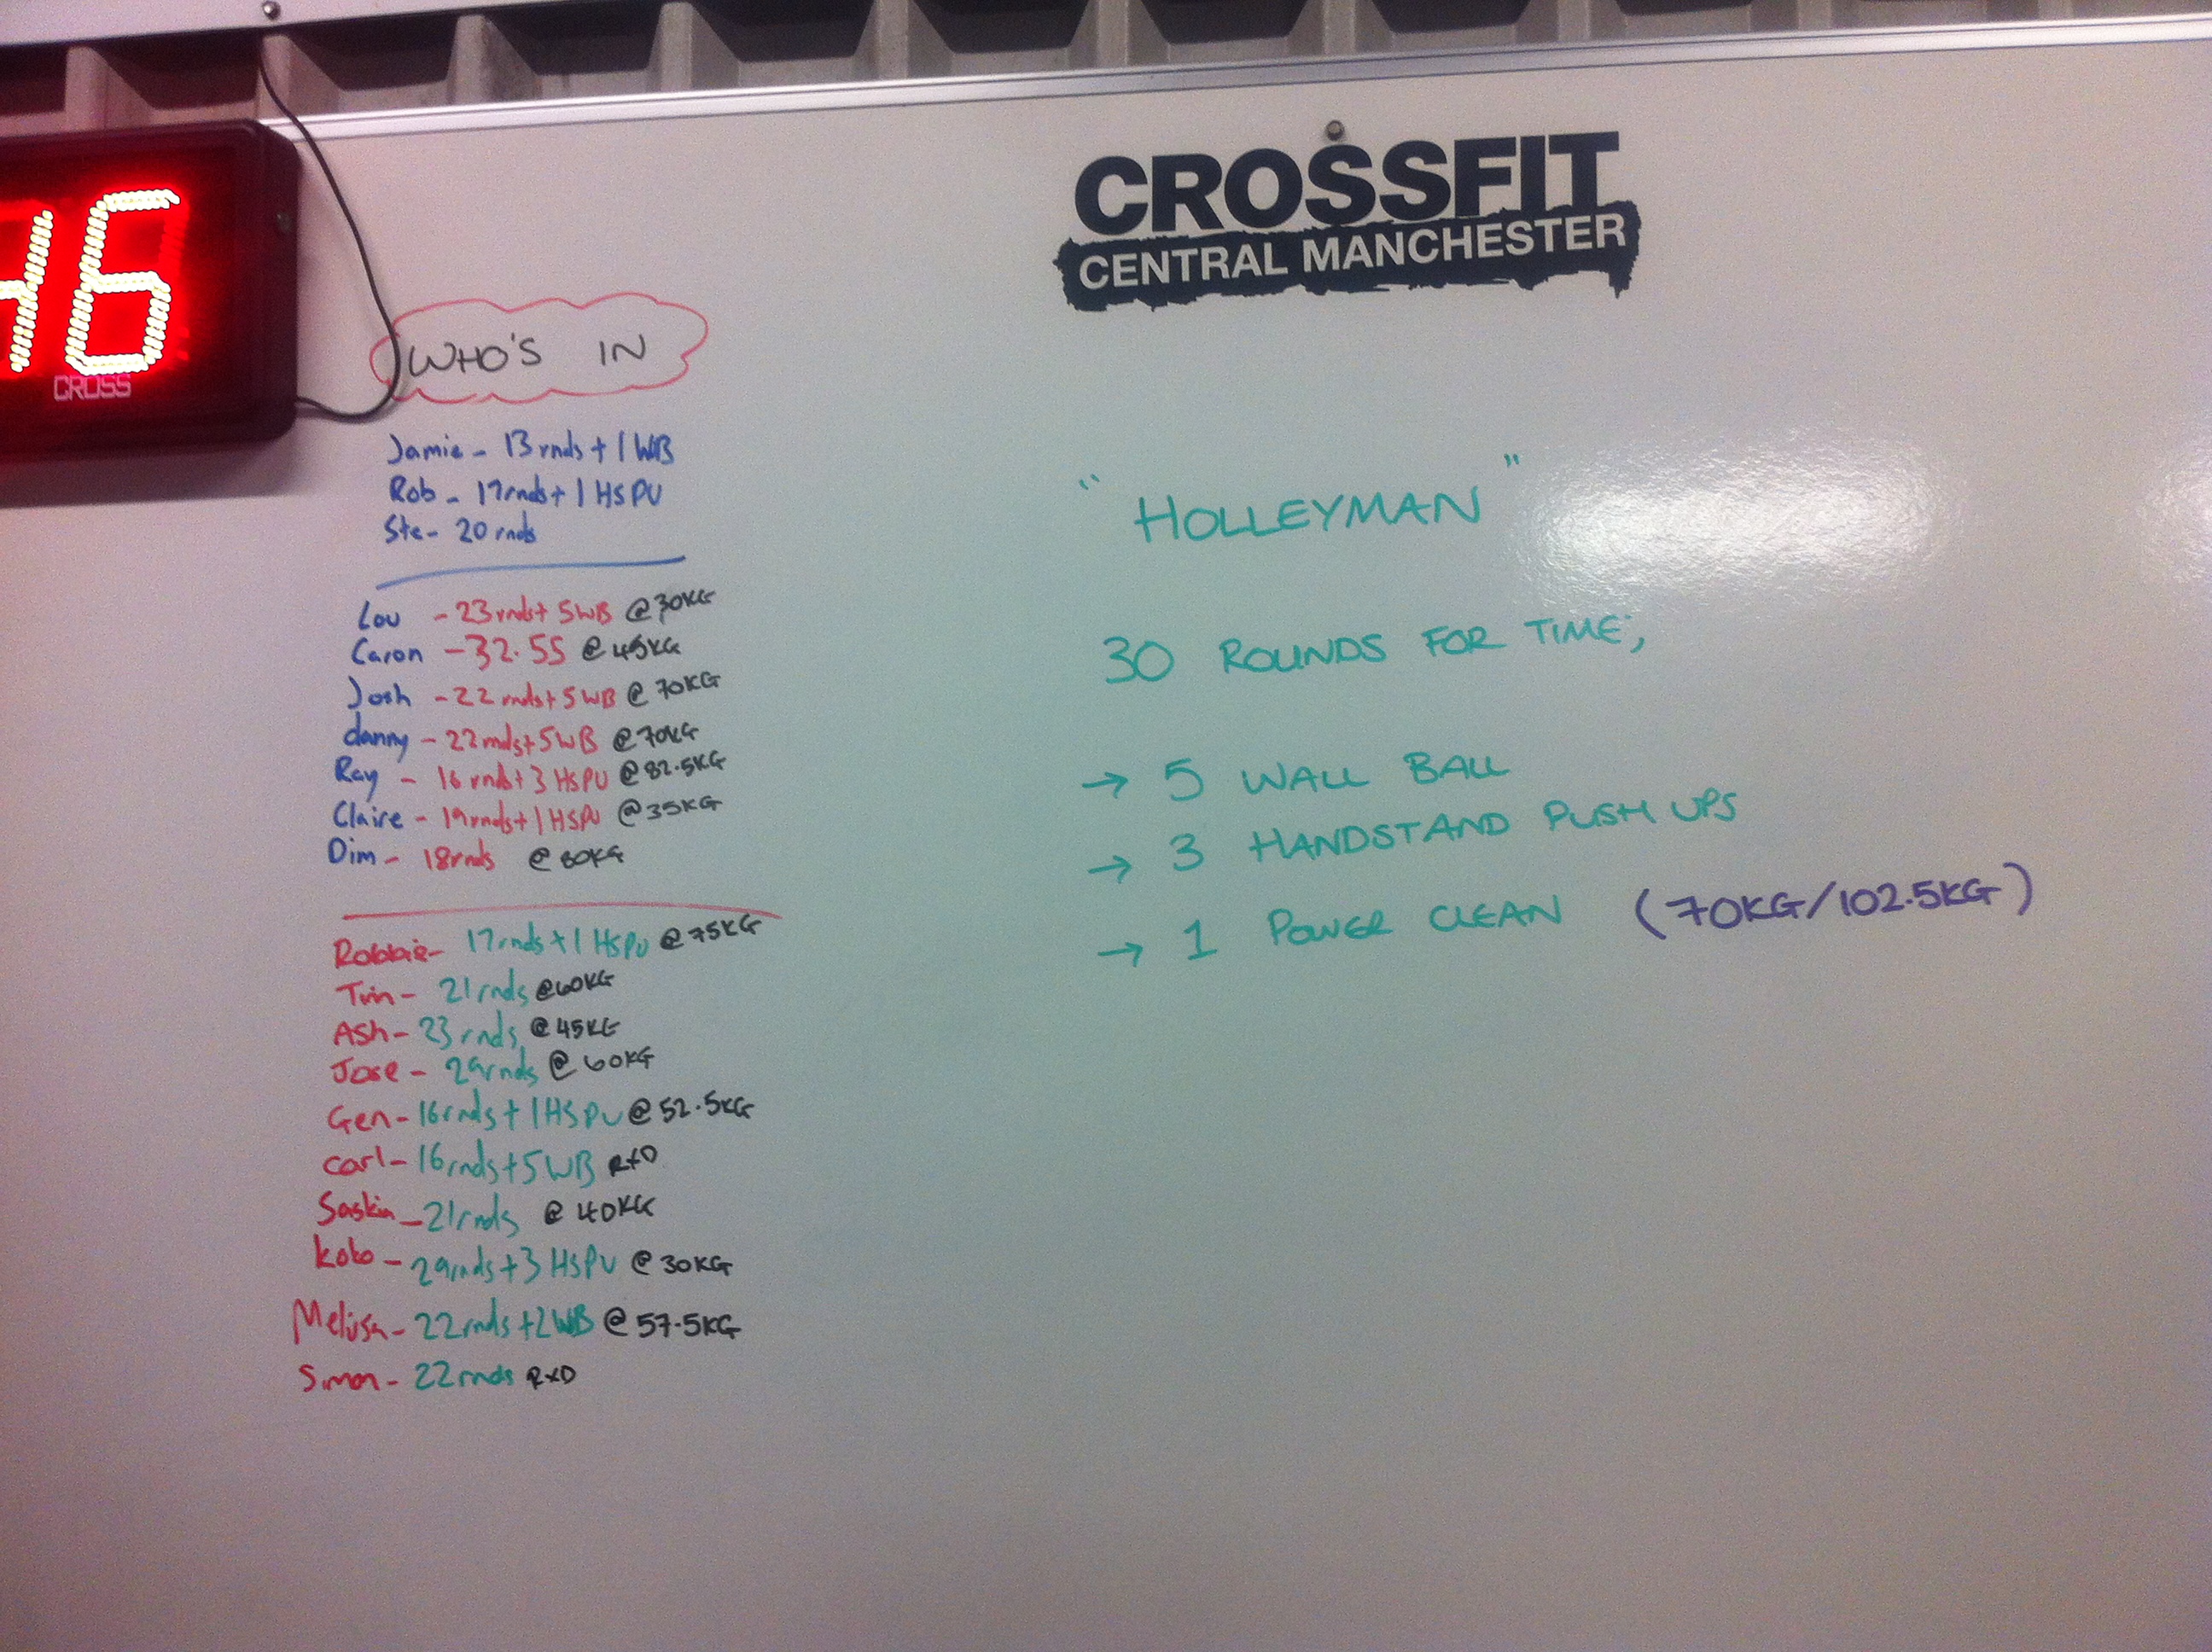 46
CROSS
CROSSFIT
CENTRAL MANCHESTER
WHO'S IN
Jamie - 13 rnds + 1 WB
Rob - 17rnds + 1 HSPU
Ste - 20 rnds
Lou - 23 rnds + 5WB @30KG
Caron - 32.55 @ 45KG
Josh - 22 rnds + 5 WB @ 70KG
danny - 22rnds + 5WB @70KG
Ray - 16 rnds + 3 HSPU @82.5KG
Claire - 19rnds + 1 HSPU @35KG
Dim - 18rnds @ 80KG
Robbie - 17rnds + 1 HSPU @ 75KG
Twin - 21rnds @60KG
Ash - 23 rnds @ 45KG
Jose - 29rnds @ 60KG
Gen - 16rnds + 1HSPU @ 52.5KG
Carl - 16rnds + 5WB RXD
Saskia - 21rnds @ 40KG
Kobo - 29rnds + 3 HSPU @ 30KG
Melissa - 22rnds + 2WB @ 57.5KG
Simon - 22rnds RXD
"HOLLEYMAN"
30 ROUNDS FOR TIME;
→ 5 WALL BALL
→ 3 HANDSTAND PUSH UPS
→ 1 POWER CLEAN (70KG/102.5KG)